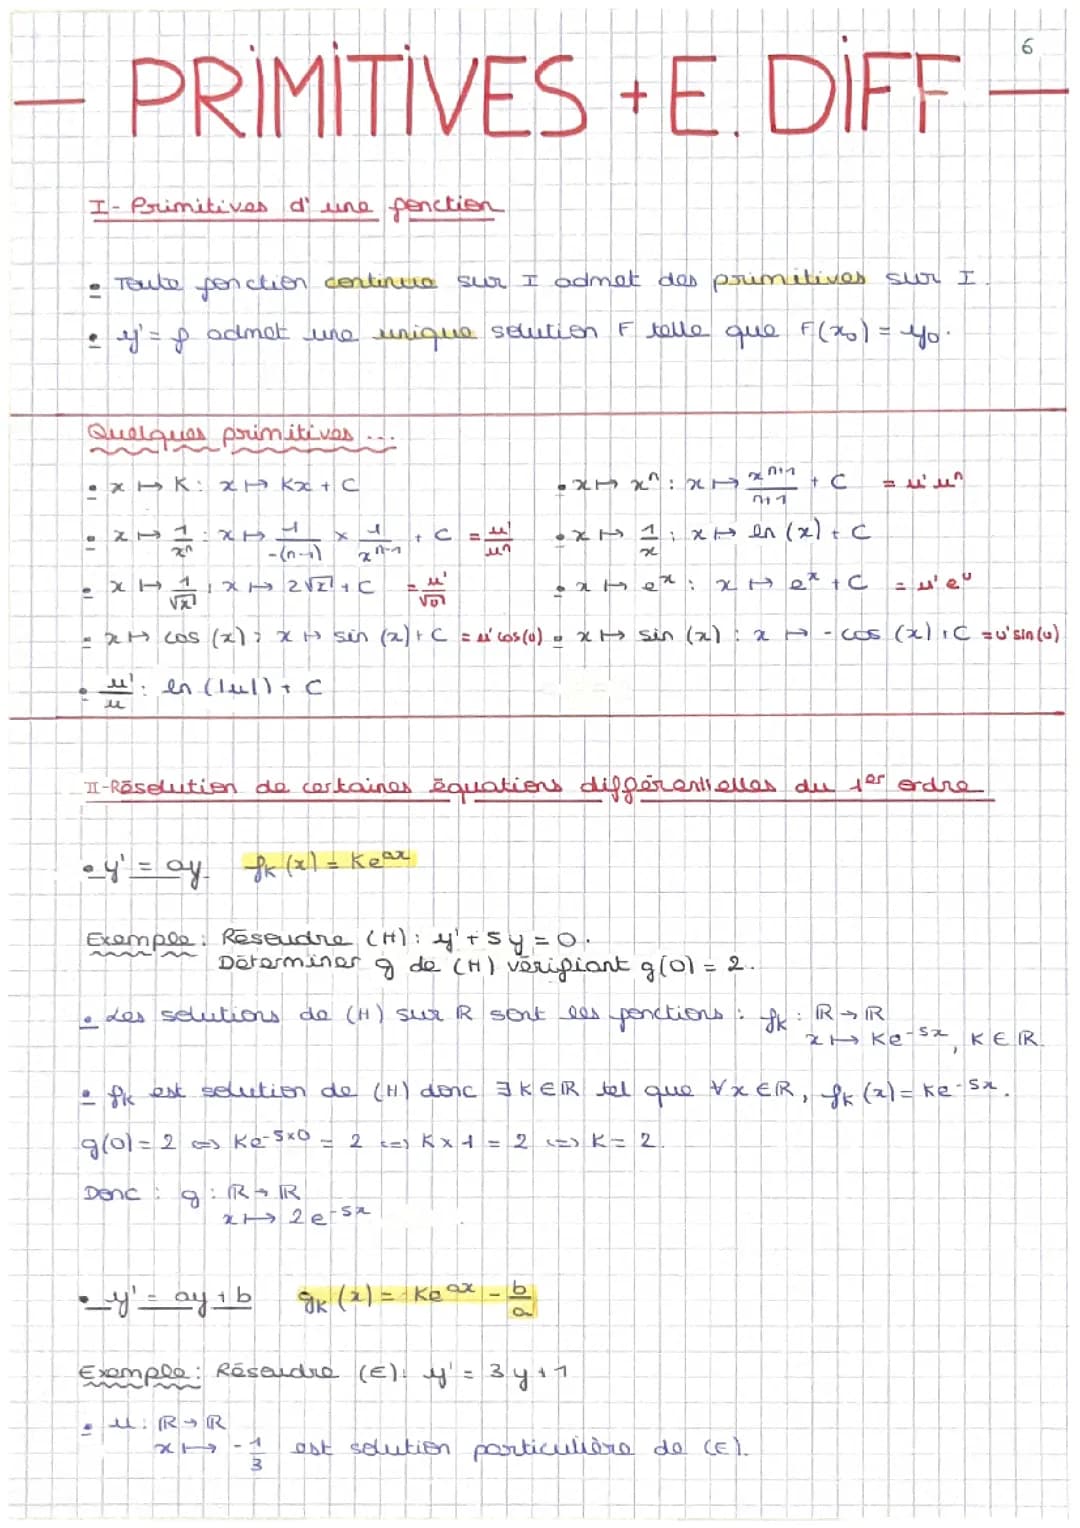 6
— PRIMITIVES + E. DIFF —
I- Primitives d'une fonction
• Toute fonction continue sur I admet des primitives sur I.
• y' = f admet une unique solution F telle que F(x₀) = y₀.
Quelques primitives ...
• x ↦ K : x ↦ Kx + C
• x ↦ xⁿ : x ↦ xⁿ⁺¹/n+1 + C = u'uⁿ
• x ↦ 1/xⁿ : x ↦ 1/-(n-1) × 1/xⁿ⁻¹ + C = u'/uⁿ
• x ↦ 1/x : x ↦ ln (x) + C
• x ↦ 1/√x : x ↦ 2√x + C = u'/√u
• x ↦ eˣ : x ↦ eˣ + C = u'eᵘ
• x ↦ cos (x) : x ↦ sin (x) + C = u'cos(u)
• x ↦ sin (x) : x ↦ -cos (x) + C = u'sin(u)
• u'/u : ln (|u|) + C
II-Résolution de certaines équations différentielles du 1er ordre
• y' = ay fK (x) = Ke^ax
Exemple : Résoudre (H) : y' + 5y = 0.
Déterminer g de (H) vérifiant g(0) = 2.
• Les solutions de (H) sur ℝ sont les fonctions : fK : ℝ → ℝ
x ↦ Ke^-5x, K ∈ ℝ.
• fK est solution de (H) donc ∃ K ∈ ℝ tel que ∀x ∈ ℝ, fK (x) = Ke^-5x.
g(0) = 2 ⇔ Ke^-5×0 = 2 ⇔ K × 1 = 2 ⇔ K = 2.
Donc : g : ℝ → ℝ
x ↦ 2e^-5x
• y' = ay + b gK (x) = Ke^ax - b/a
Exemple : Résoudre (E) : y' = 3y + 1
• u : ℝ → ℝ
x ↦ -1/3 est solution particulière de (E).